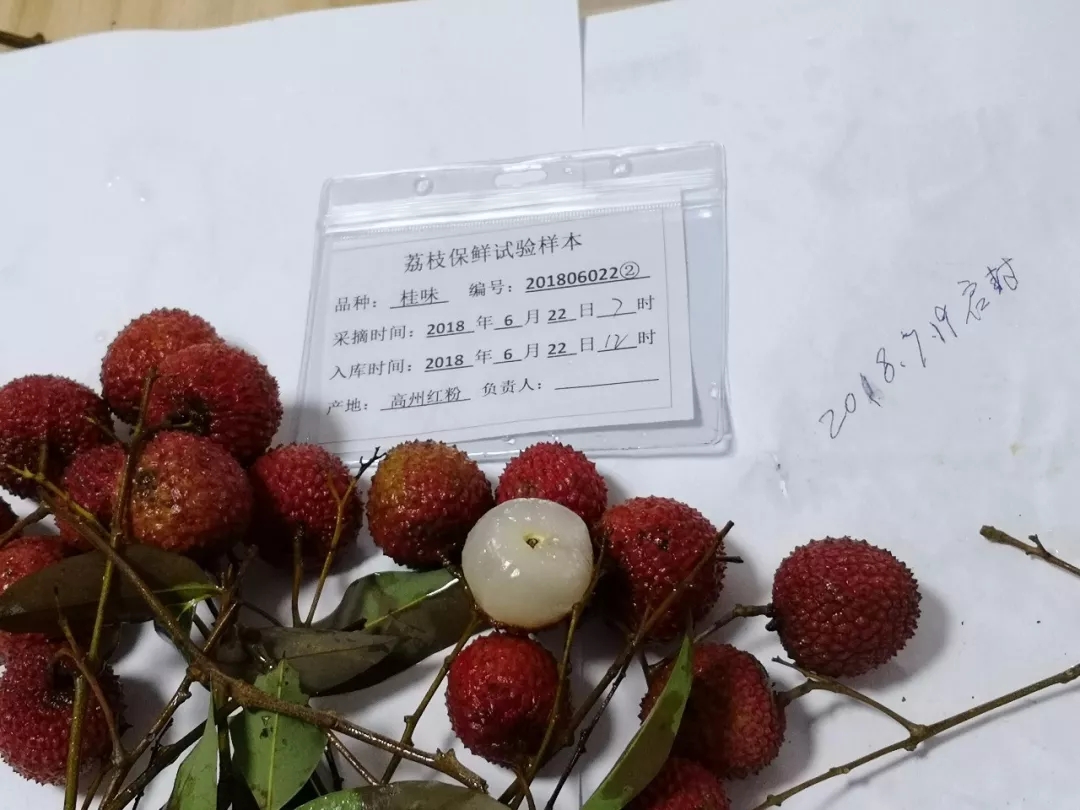 荔枝保鲜试验样本
品种： 桂味 编号：201806022②
采摘时间：2018 年 6 月 22 日 2 时
入库时间：2018 年 6 月 22 日 12 时
产地： 高州红粉 负责人：
2018.7.19启封